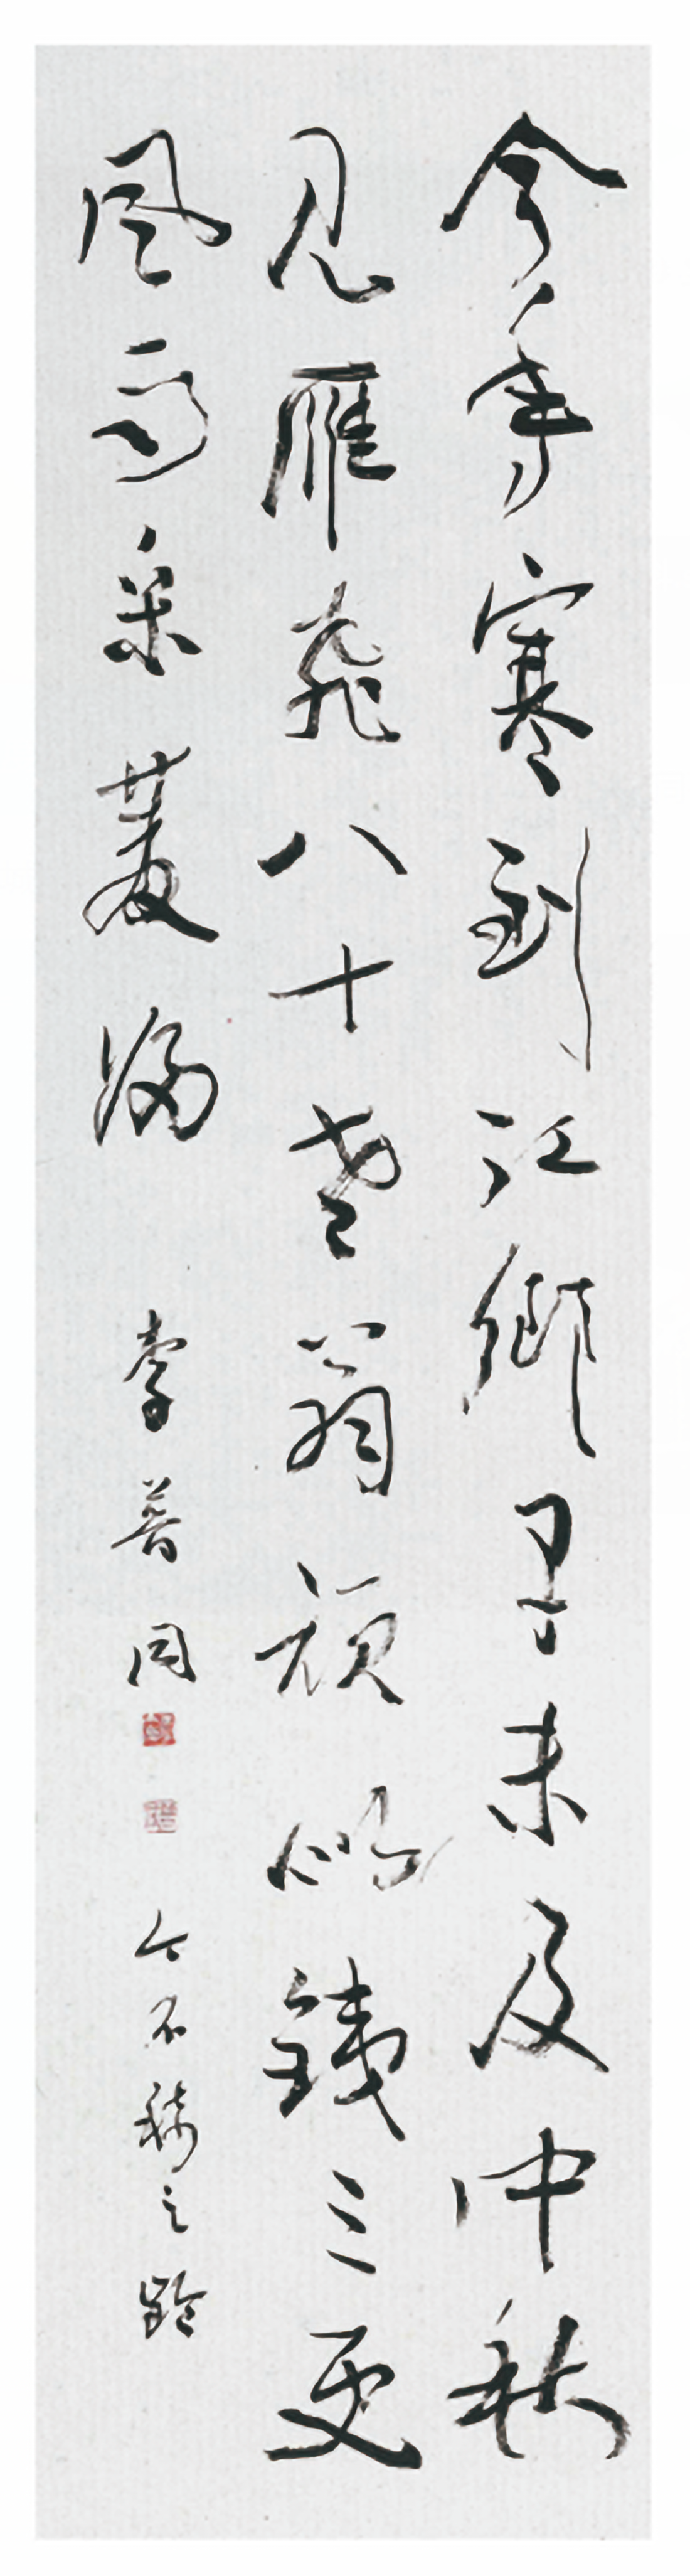 今年寒到江鄉早未及中秋
見雁飛八十老翁頑似鐵三更
風雨采菱歸 李普同 今不稀之齡